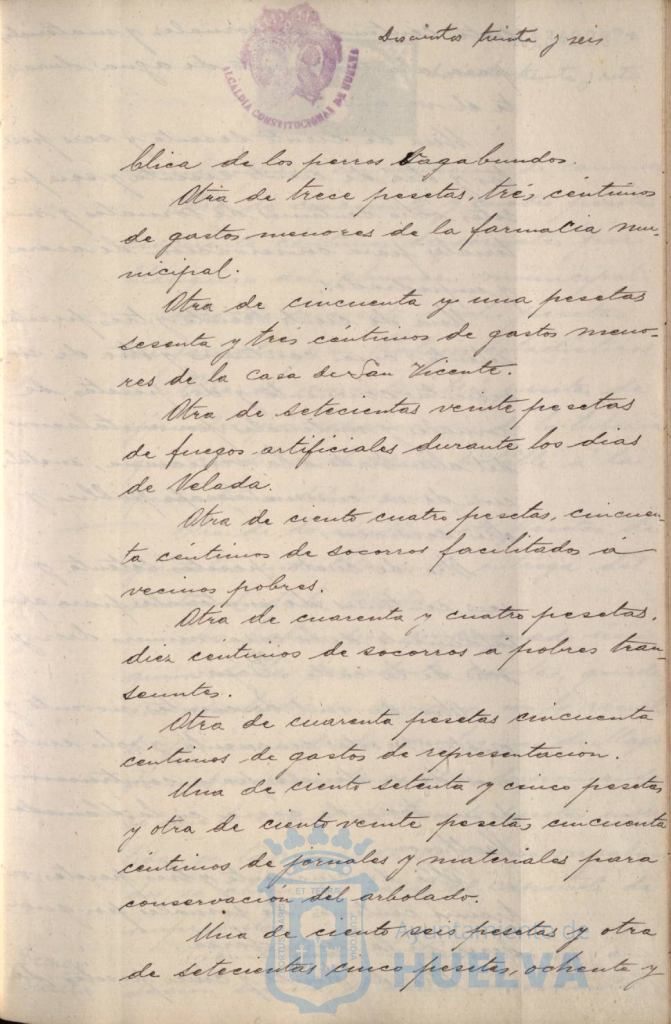 Doscientos treinta y seis
ALCALDIA CONSTITUCIONAL DE HUELVA
blica de los perros vagabundos.
Otra de trece pesetas, tres céntimos
de gastos menores de la farmacia mu-
nicipal.
Otra de cincuenta y una pesetas
sesenta y tres céntimos de gastos meno-
res de la casa de San Vicente.
Otra de setecientas veinte pesetas
de fuegos artificiales durante los dias
de Velada.
Otra de ciento cuatro pesetas, cincuen-
ta céntimos de socorros facilitados á
vecinos pobres.
Otra de cuarenta y cuatro pesetas,
diez centimos de socorros á pobres tran-
seuntes.
Otra de cuarenta pesetas cincuenta
céntimos de gastos de representacion.
Una de ciento setenta y cinco pesetas
y otra de ciento veinte pesetas, cincuenta
céntimos de jornales y materiales para
conservación del arbolado.
Una de ciento seis pesetas y otra
de setecientas cinco pesetas, ochenta y
PORTUS MARIS ET TERRE CUSTODIA
Ayuntamiento de
HUELVA